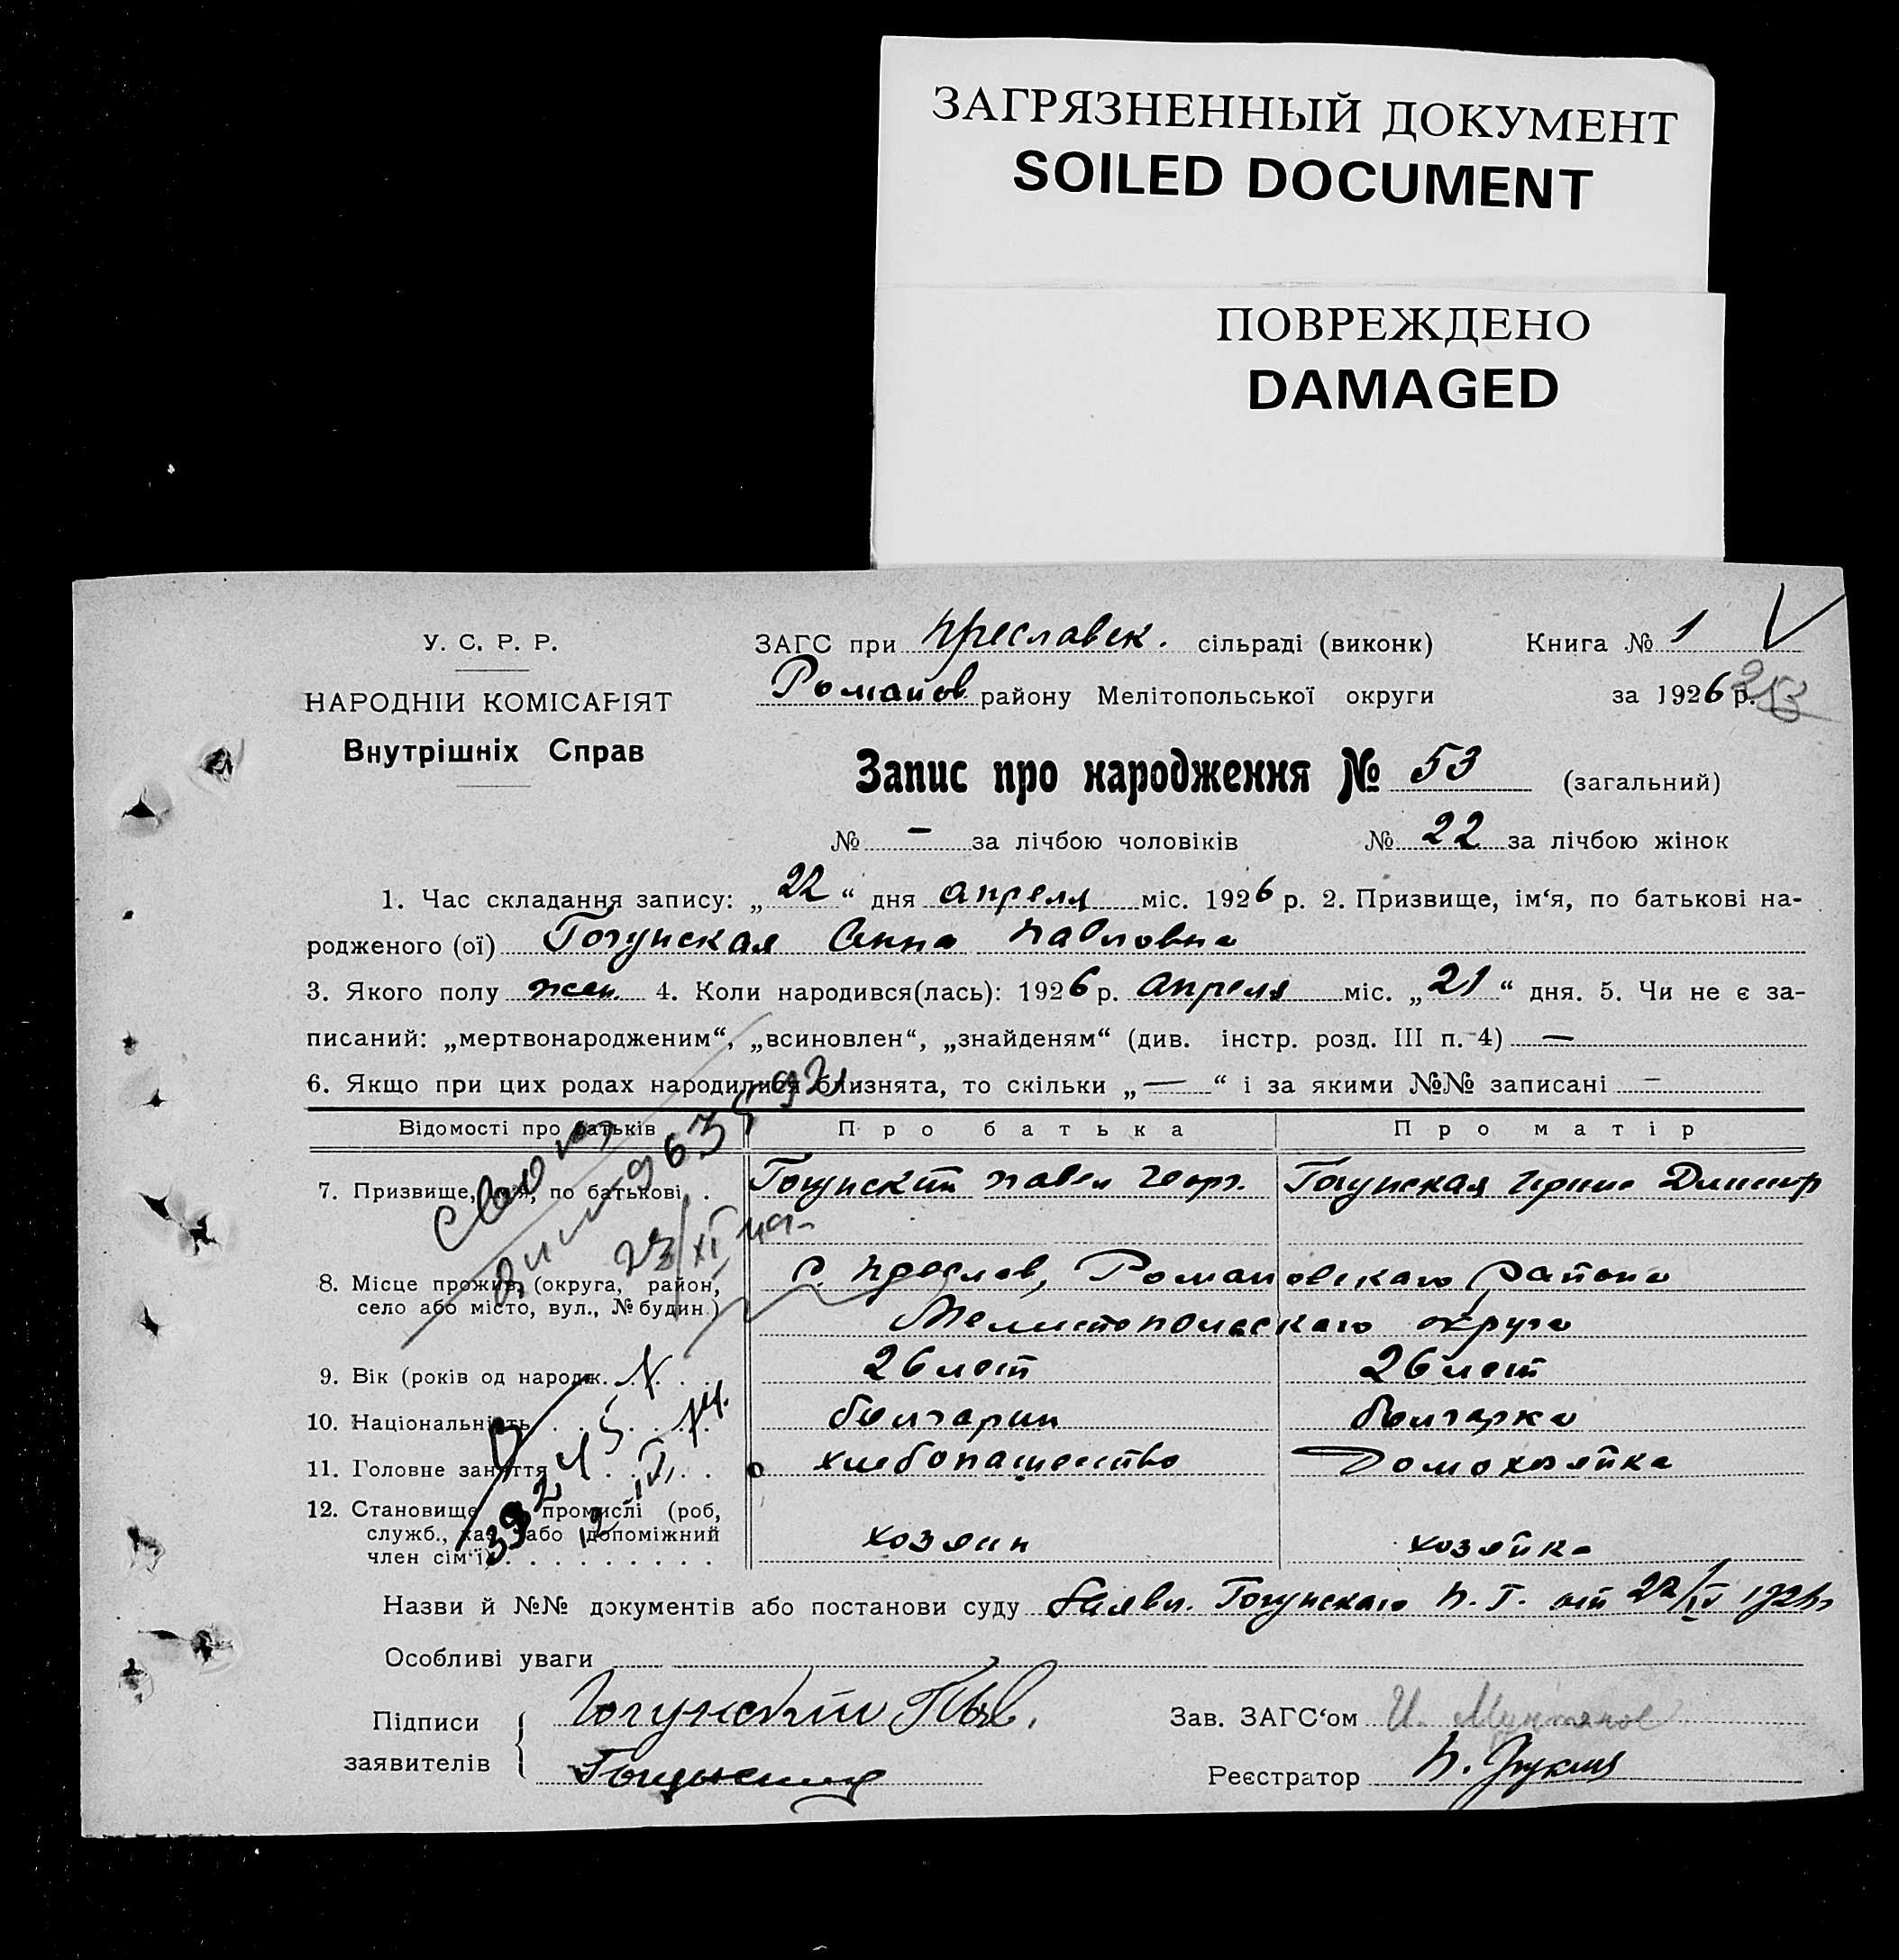 ЗАГРЯЗНЕННЫЙ ДОКУМЕНТ
SOILED DOCUMENT
ПОВРЕЖДЕНО
DAMAGED
У. С. Р. Р.
НАРОДНІЙ КОМІСАРІЯТ
Внутрішніх Справ
ЗАГС при Преславск. сільраді (виконк) Книга № 1
Романов району Мелітопольської округи за 1926 р.
253
Запис про народження № 53 (загальний)
№ — за лічбою чоловіків № 22 за лічбою жінок
1. Час складання запису: „22“ дня апреля міс. 1926 р. 2. Призвище, ім‘я, по батькові на-
родженого (ої) Гогунская Анна Павловна
3. Якого полу жен. 4. Коли народився(лась): 1926 р. апреля міс. „21“ дня. 5. Чи не є за-
писаний: „мертвонародженим“, „всиновлен“, „знайденям“ (див. інстр. розд. III п. 4) —
6. Якщо при цих родах народилися близнята, то скільки „—“ і за якими №№ записані —
Відомості про батьків Про батька Про матір
7. Призвище, ім‘я, по батькові . Гогунский Павел Геор. Гогунская Ирина Дмитр
8. Місце прожив. (округа, район,
село або місто, вул., № будин.)
с. Преслав, Романовскаго района
Мелитопольскаго округа
9. Вік (років од народж. . . . . 26 лет 26 лет
10. Національність . . . . . болгарин болгарка
11. Головне заняття . . . . хлебопашество Домохозяйка
12. Становище в промислі (роб,
служб., хаз. або допоміжний
член сім‘ї) . . . . . . . . . хозяин хозяйка
23/XI
Назви й №№ документів або постанови суду Заявл. Гогунскаго П. Г. от 22/IV 1926 г
Особливі уваги
Підписи заявителів { Гогунский Пав.
Гогунский
Зав. ЗАГС‘ом И.
Реєстратор П.